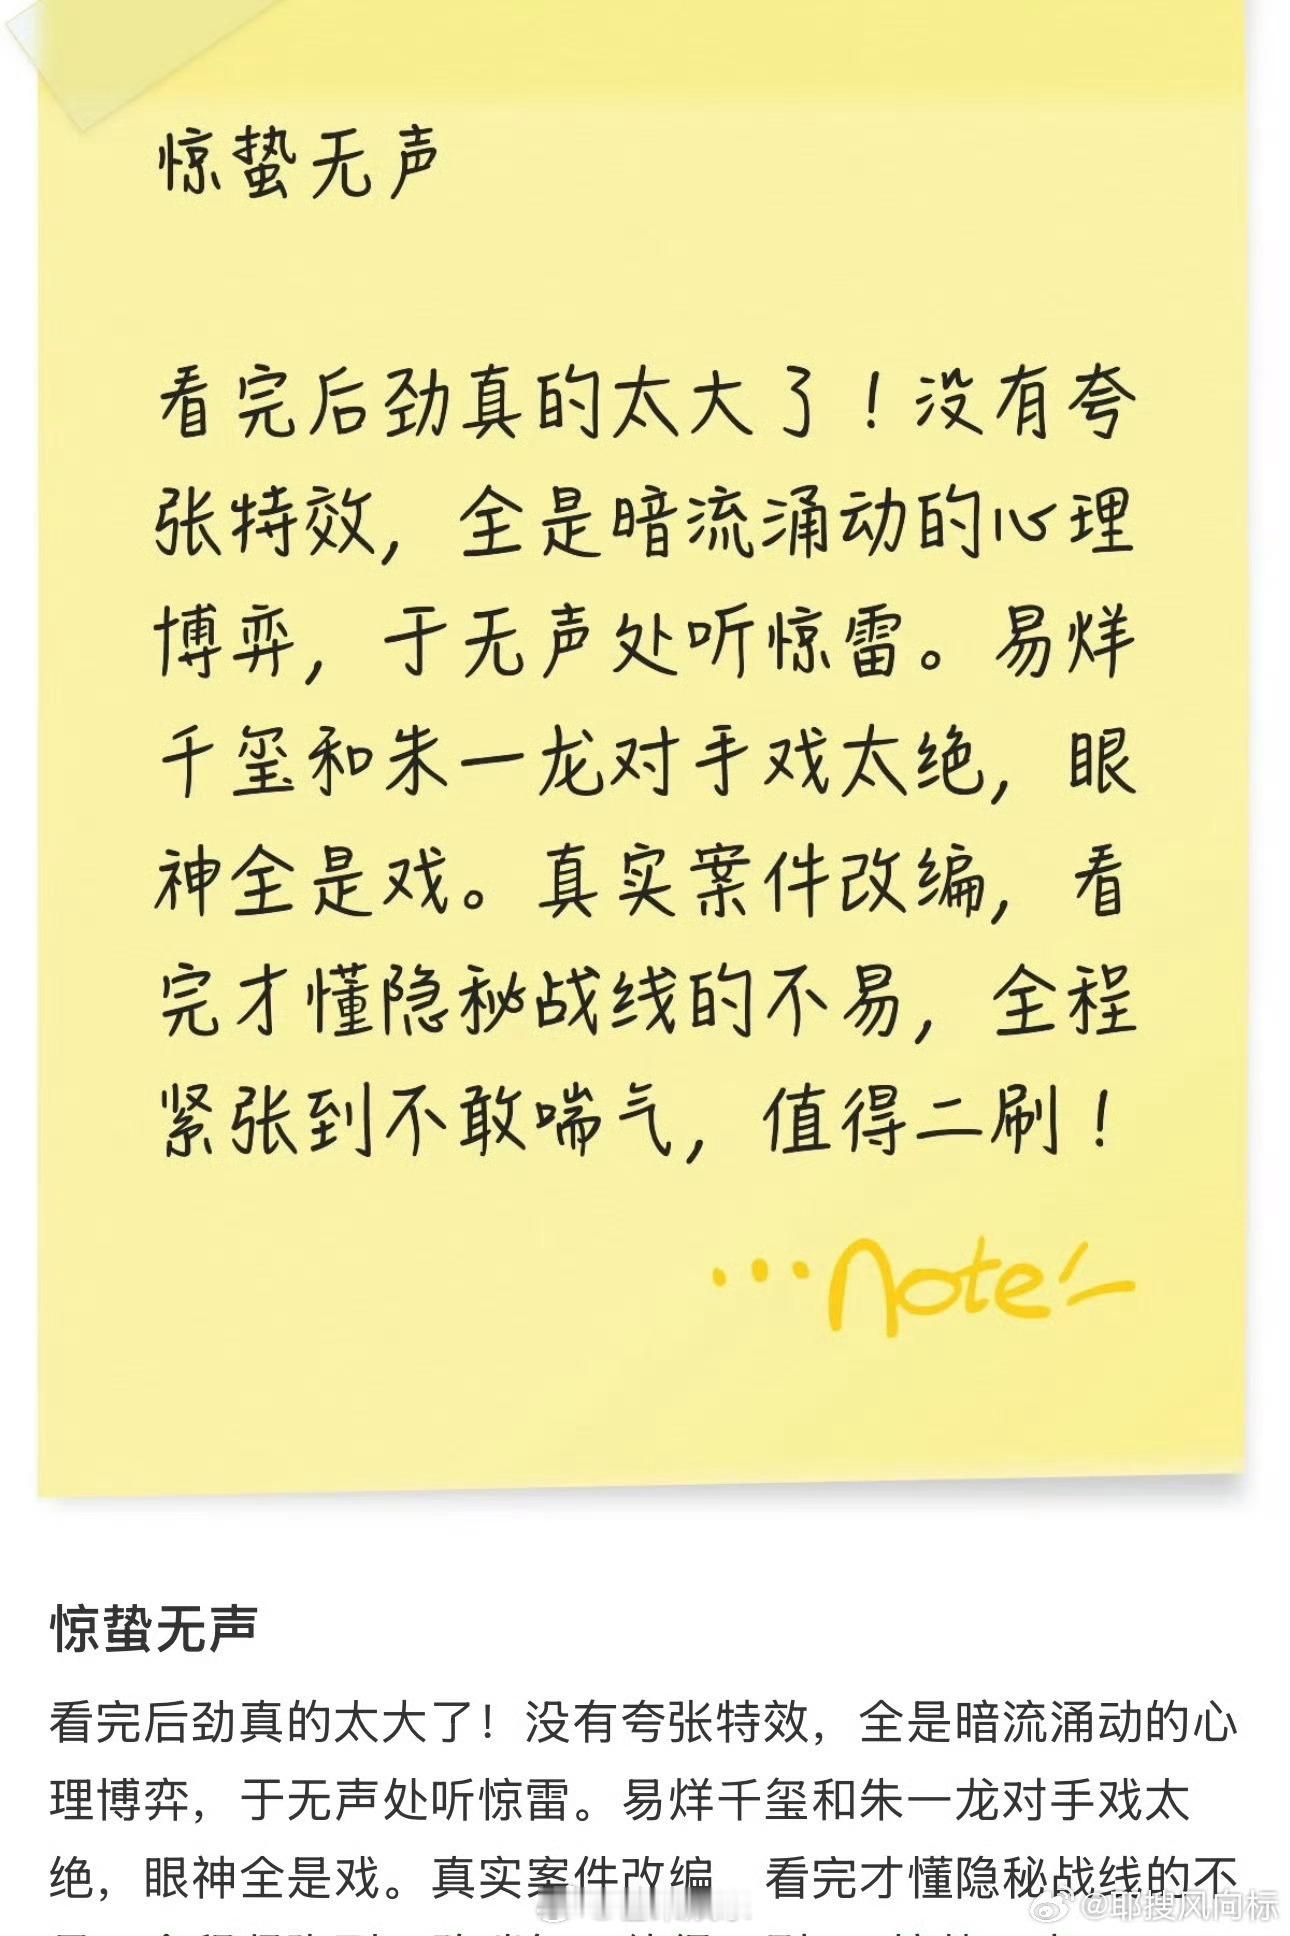 惊蛰无声
看完后劲真的太大了！没有夸
张特效，全是暗流涌动的心理
博弈，于无声处听惊雷。易烊
千玺和朱一龙对手戏太绝，眼
神全是戏。真实案件改编，看
完才懂隐秘战线的不易，全程
紧张到不敢喘气，值得二刷！
...note
惊蛰无声
看完后劲真的太大了！没有夸张特效，全是暗流涌动的心
理博弈，于无声处听惊雷。易烊千玺和朱一龙对手戏太
绝，眼神全是戏。真实案件改编 看完才懂隐秘战线的不
@耶搜风向标